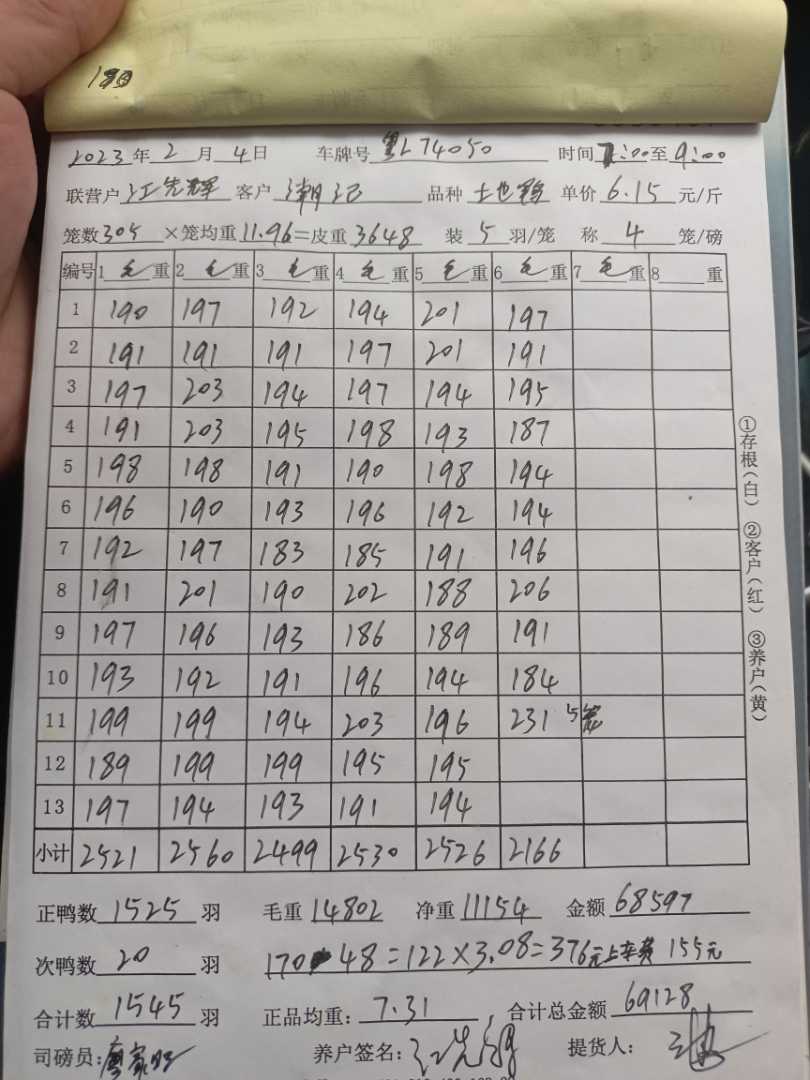 180
2023年2月4日 车牌号 黑L74050 时间7:00至9:00
联营户 江先辉 客户 潮记 品种 土也鸭 单价6.15元/斤
笼数305×笼均重11.96=皮重3648 装5羽/笼 称4笼/磅
编号 1毛重 2毛重 3毛重 4毛重 5毛重 6毛重 7毛重 8重
1 190 197 192 194 201 197
2 191 191 191 197 201 191
3 197 203 194 197 194 195
4 191 203 195 198 193 187
5 198 198 191 190 198 194
6 196 190 193 196 192 194
7 192 197 183 185 191 196
8 191 201 190 202 188 206
9 197 196 193 186 189 191
10 193 192 191 196 194 184
11 199 199 194 203 196 231 5笼
12 189 199 199 195 195
13 197 194 193 191 194
小计 2521 2560 2499 2530 2526 2166
①存根(白) ②客户(红) ③养户(黄)
正鸭数1525羽 毛重14802 净重11154 金额68597
次鸭数20羽 170 48=122×3.08=376元上车费155元
合计数1545羽 正品均重:7.31,合计总金额69128
司磅员: 养户签名: 提货人: